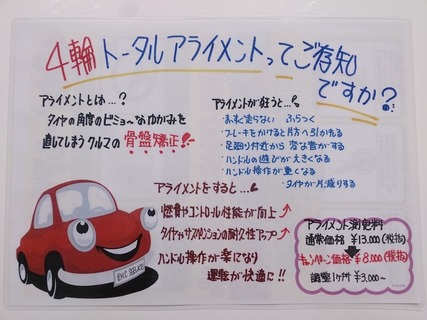 4輪トータルアライメントってご存知
ですか?
アライメントとは...?
タイヤの角度のビミョ〜なゆがみを
直してしまうクルマの骨盤矯正!!
アライメントが狂うと...
・まっすぐ走らない ふらつく
・ブレーキをかけると片方へ引かれる
・足廻り付近から変な音がする
・ハンドルの遊びが大きくなる
・ハンドル操作が重くなる
・タイヤが片減りする
アライメントをすると...
燃費やコントロール性能が向上
タイヤやサスペンションの耐久性アップ
ハンドル操作が楽になり
運転が快適に!!
アライメント測定料
通常価格 ¥13,000(税抜)
キャンペーン価格 ¥8,000(税抜)
調整1ヶ所 ¥3,000〜